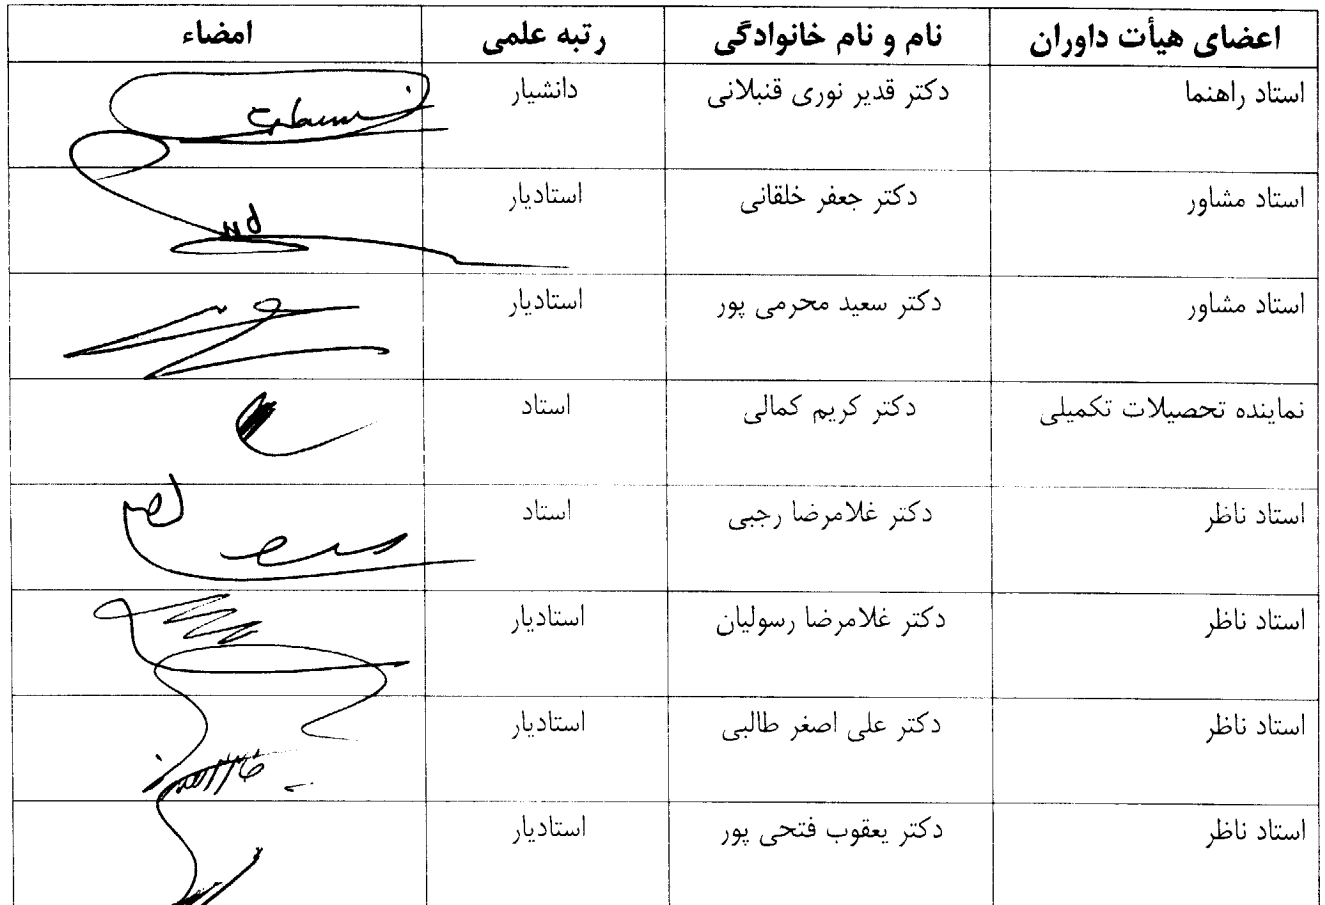 اعضای هیأت داوران نام و نام خانوادگی رتبه علمی امضاء
استاد راهنما دکتر قدیر نوری قنبلانی دانشیار
استاد مشاور دکتر جعفر خلقانی استادیار
استاد مشاور دکتر سعید محرمی پور استادیار
نماینده تحصیلات تکمیلی دکتر کریم کمالی استاد
استاد ناظر دکتر غلامرضا رجبی استاد
استاد ناظر دکتر غلامرضا رسولیان استادیار
استاد ناظر دکتر علی اصغر طالبی استادیار
استاد ناظر دکتر یعقوب فتحی پور استادیار